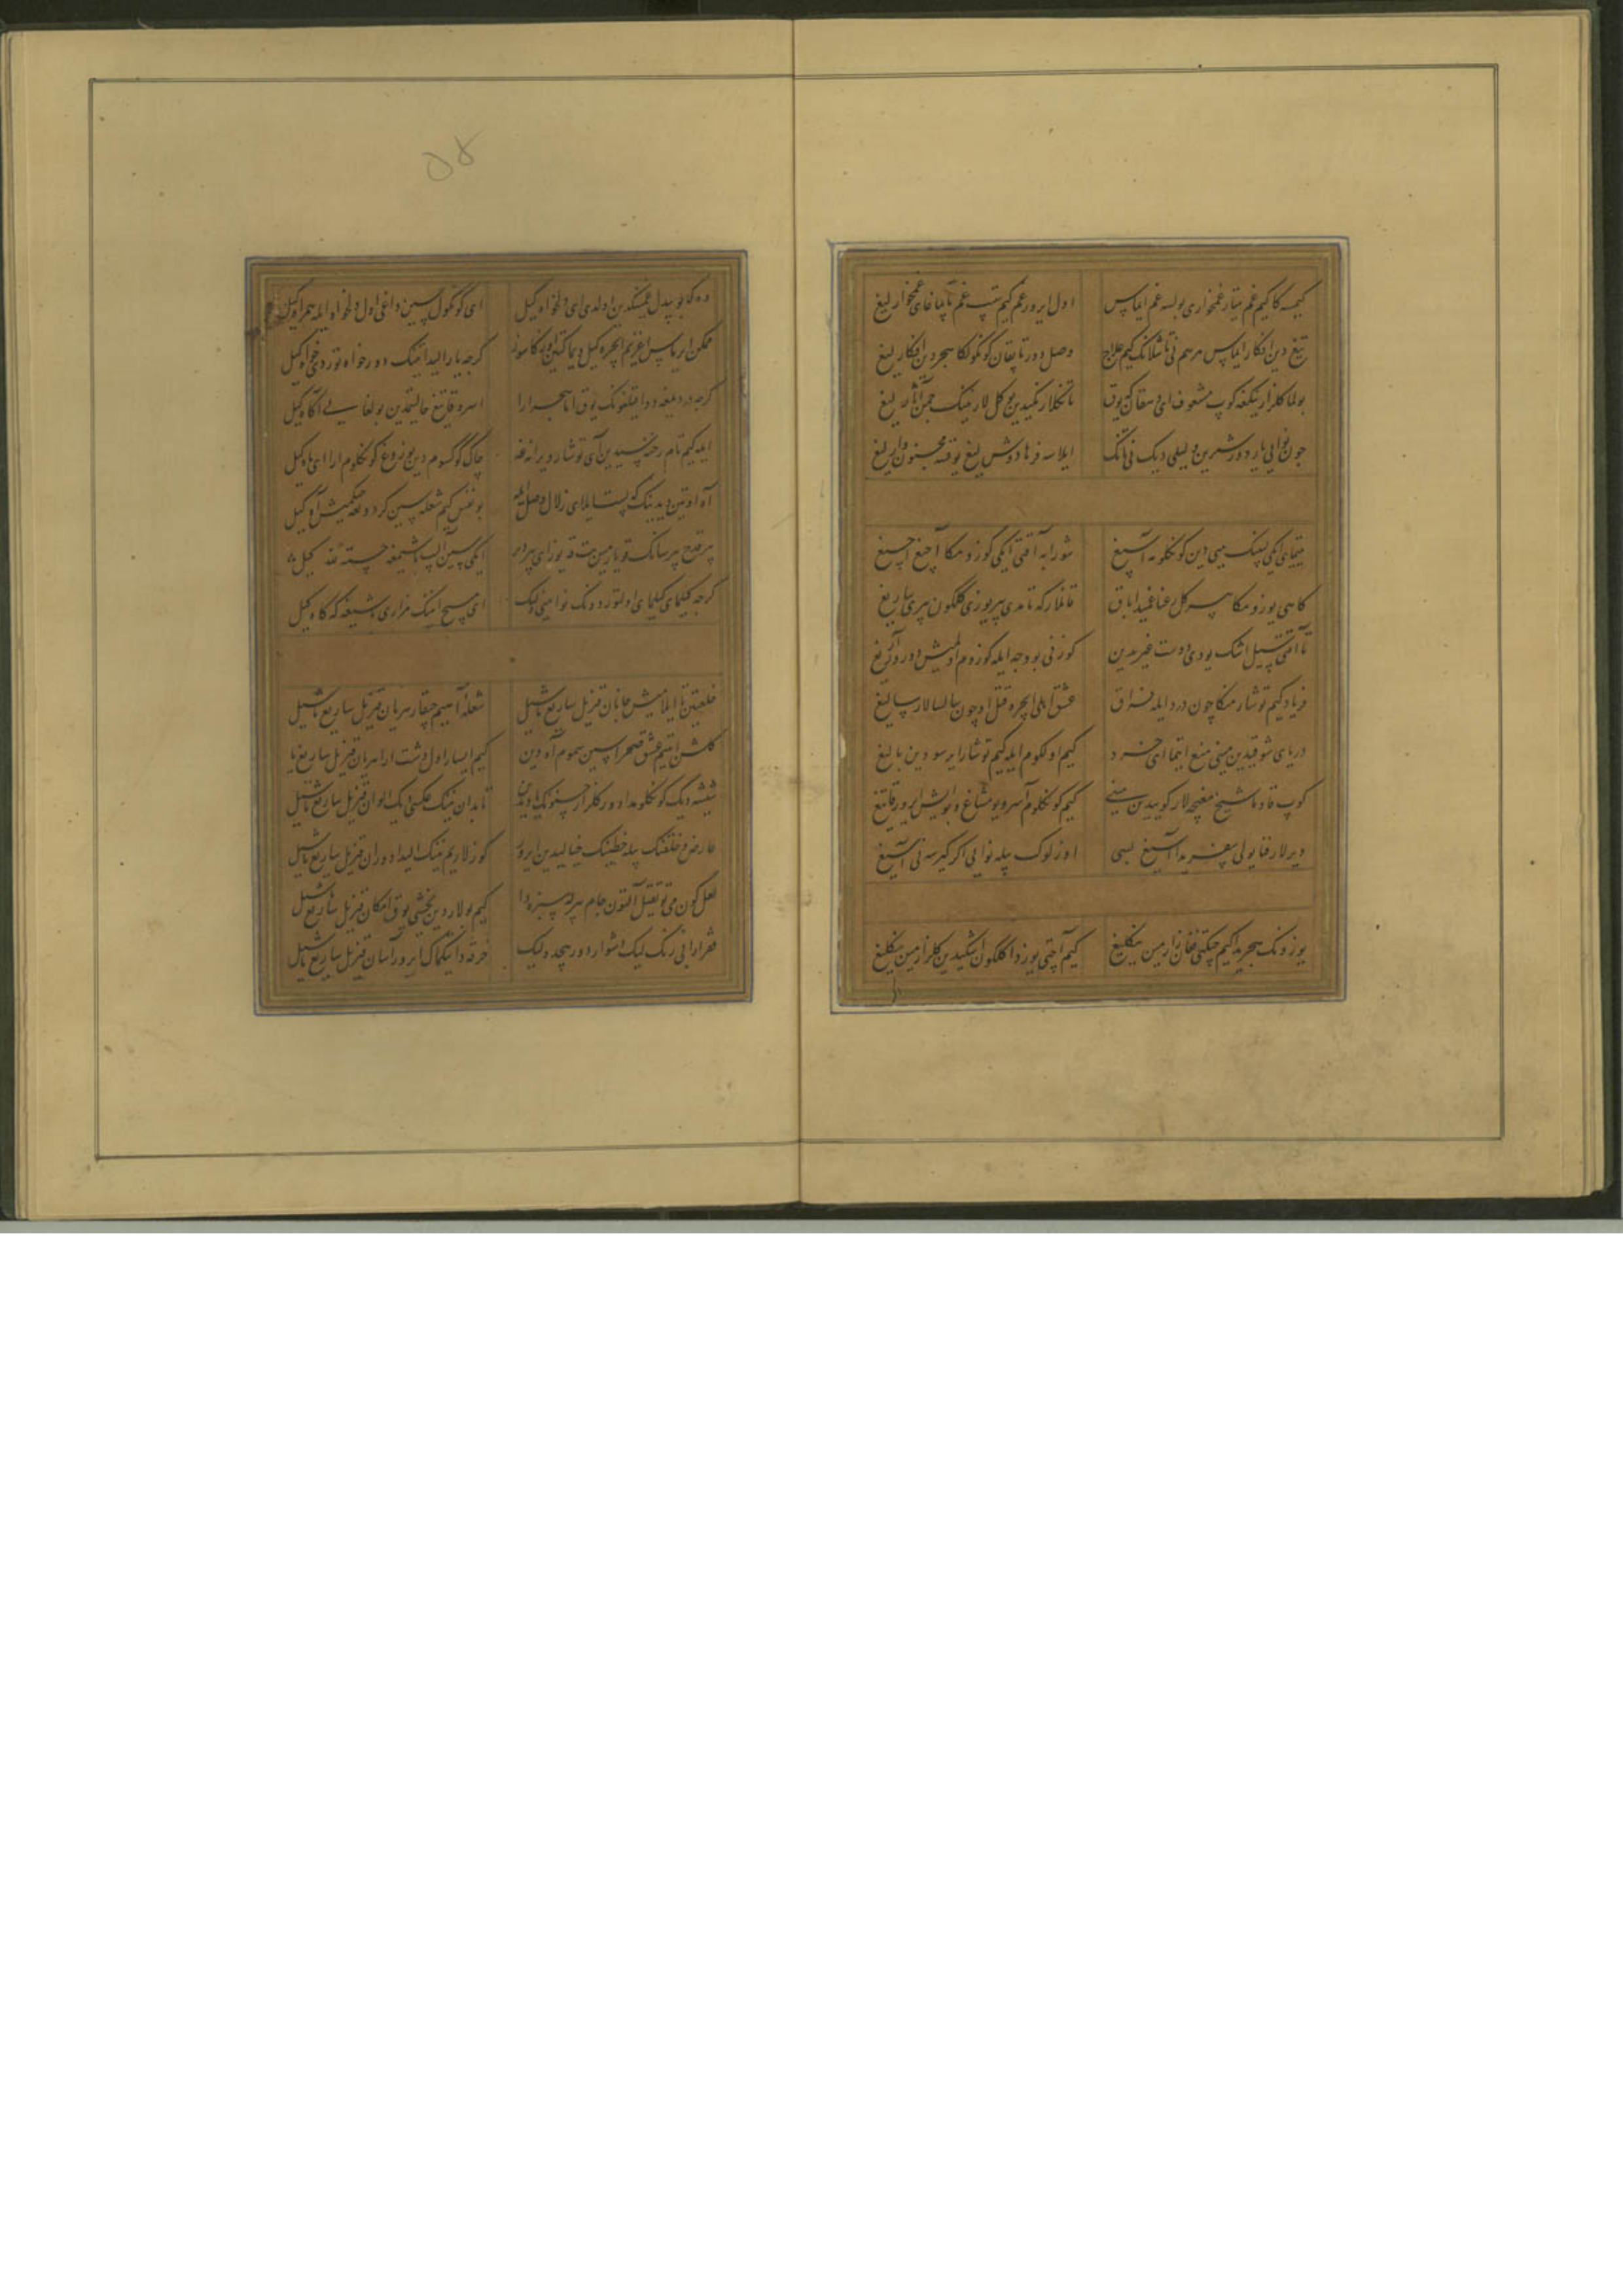 کیمسه کا کیم غم ییتار غمخواری بولسه غم ایماس
اول ایرور غم کیم ییتیب غم تاپماغای غمخوارلیغ
تیغ دین افکار ایماس مرهم نی تاشلانک کیم علاج
وصل دور تاپقان کونکولکا هجردین افکارلیغ
بولما کلزارینکغه کوپ مشعوف ای دهقان که یوق
تانکلار نکیدین بو کل لار نینک چمن آثارلیغ
چون نوایی یار دور شیرین و لیلی دیک نی تانک
ایلاسه فرهادوش لیغ یوقسه مجنون وارلیغ
ییتمای ایکی لبینک میی دین کونکلومه آسیغ
شورابه آقتی ایکی کوزومکا آچیغ آچیغ
کاهی یوزومکا هر کل رعنا غمیدا باق
قانلار که تامدی بیر یوزی کلکون بیری ساریغ
تا آقتی سیل اشک یودی دوست غیردین
کوزنی بو وجه ایله کوزوم اولمیش دور آریغ
فریاد کیم توشار منکا چون درد ایله فراق
عشق اهلی ایچره قتل اوچون سالسالار سالیغ
دریای شوقیدین مینی منع ایتما ای خرد
کیم اولکوم ایله کیم توشار ایرسودین بالیغ
کوپ قاوما شیخ مغبچه لار کوییدین مینی
کیم کونکلوم آسرو یومشاغ و بو ایش ایرور قاتیغ
دیرلار فنا یولی سفریدا آسیغ بسی
اوزلوک بیله نوایی اکر کیرسه نی آسیغ
یوزونک هجریدا کیم چیکتی فغان زار مین ینکلیغ
کیم آچتی یوزدا کلکون اشکیدین کلزار مین ینکلیغ
۵۸
وه که بو بیدل غمینکدین اولدی ای دلخواه کیل
ای کونکول سین داغی اول دلخواه ایله همراه کیل
ممکن ایرماس اغزیم ایچره کیل دیماکتین اوزکا سوز
کرچه یار الیدا مینک دورخواه تور دخی خواه کیل
کرچه دردیمغه دوا قیلغونک یوق اما بهر خدا
اسرو قاتیغ حالیمدین بولغاسین آکاه کیل
ایله کیم تام رخنه سیدین آی توشار ویرانه غه
چاک کوکسوم دین یوز وغ کونکلوم ارا ای ماه کیل
آه اوتین دیدینک که پست ایلای زلال وصل ایله
بو نفس کیم شعله سین کردونغه چیکمیش آه کیل
بیر قدح بیرسانک قویارمین مست قه یوز ای پیر دیر
ایکی سین آلیب باشیمغه جسته لله کیل
کرچه کیلمای کیلمای اولتوردونک نوایینی ولیک
ای مسیح امینک مزاری باشیغه که کاه کیل
خلعتین تا ایلامیش جانان قیزیل ساریغ یاشیل
شعله آهیم چیقار هریان قیزیل ساریغ یاشیل
کلشن ایتیم عشق صحراسین سموم آه دین
کیم ایسار اول دشت ارا هریان قیزیل ساریغ یاشیل
شیشه دیک کونکلومدا دور کلزار حسنونک یادیدین
تابدان نینک عکسی دیک الوان قیزیل ساریغ یاشیل
عارض و خلعتینک بیله خطینک خیالیدین ایرور
کوزلاریم نینک الیدا دوران قیزیل ساریغ یاشیل
لعل کون می توتقیل آلتون جام بیرله سبزه دا
کیم بولاردین یخشی یوق امکان قیزیل ساریغ یاشیل
فقر ارا بی رنک لیک دشوار دور هیچه ولیک
خرقه دا تیکماک ایرور آسان قیزیل ساریغ یاشیل